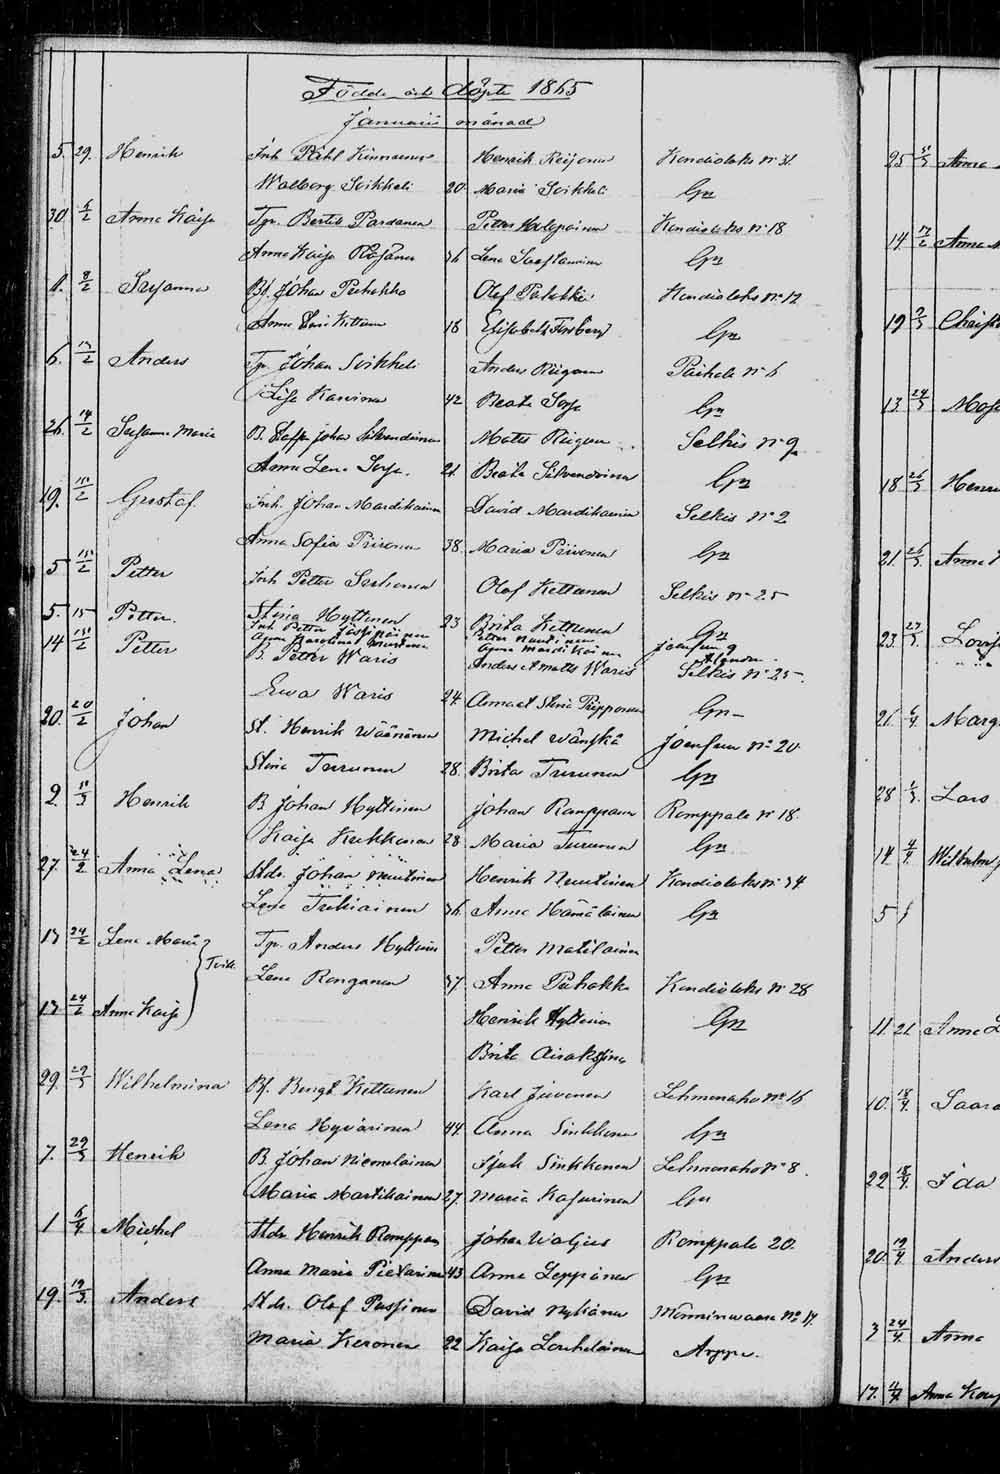 Födde och döpte 1865
Januarii månad
5. 29. Henrik Inh. Påhl Kinnunen Henrik Reijonen Kondiolaks nr 31
Walborg Soikkeli 20 Maria Soikkeli Gm
30. 5/2 Anna Kaisa Tpr. Bertil Pardanen Petter Kondiolaks nr 18
Anna Kaisa 36 Lena Gm
1. 8/2 Susanna Bf. Johan Puhakka Olof Puhakka Kondiolaks nr 12
Anna 18 Elisabeth Forsberg Gm
6. 12/2 Anders Tp. Johan Soikkeli Anders Paihola nr 6
Lisa Karvinen 42 Beata Sorsa Gm
26. 14/2 Susanna Maria B. Staffan Johan Silvendoinen Matts Selkis nr 9
Anna Lena Sorsa. 21. Beata Silvendoinen Gm
19. 15/2 Gustaf. Inh. Johan Mardikainen David Mardikainen Selkis nr 2
Anna Sofia Piironen 38. Maria Piironen Gm
5 15/2 Petter Inh Petter Olof Kettunen Selkis nr 25
Stina Hyttinen 23 Brita Kettunen Gm
5. 15 Petter. Inh. Petter Petter Nuutinen Joensuu 9
Anna Karolina Nuutinen Anna Mardikainen
14 15/2 Petter B. Petter Waris Anders et Matts Waris Selkis nr 25
Ewa Waris 24. Anna et Stina Pripponen Gm
20. 20/2 Johan St. Henrik Wäänänen Michel Wänskä Joensuu no 20
Stina Turunen 28. Brita Turunen Gm
2. 11/3 Henrik B Johan Hyttinen Johan Romppanen Romppala nr 18.
Kaisa Kukkonen 28 Maria Turunen Gm
27. 24/2 Anna Lena Stdr. Johan Nuutinen Henrik Nuutinen Kondiolaks nr 34
Lena Tukiainen 36 Anna Hämäläinen Gm
13 24/2 Lena Maria Tvill. Tp. Anders Hyttinen Petter Matilainen
Lena Ronganen 37. Anna Puhakka Kondiolaks nr 28
13 24/2 Anna Kaisa Henrik Hyttinen Gm
Brita Airaksina
29. 29/3 Wilhelmina Bf. Bengt Kettunen Karl Juvonen Lehmonaho no 16
Lena Hyvärinen 44. Anna Sinkkonen Gm
7. 29/3 Henrik B. Johan Niemeläinen Isak Sinkkonen Lehmonaho nr 8.
Maria Martikainen 27. Maria Kajurinen Gm
1 5/4 Michel Stdr Henrik Romppan Johan Waljus Romppala 20.
Anna Maria Pietarinen 43 Anna Leppänen Gm
19. 19/3. Anders Stdr. Olof Pussinen David Nykänen
Maria Keronen 22 Kaisa Louhelainen Arppe.
25 Anna
14 Anna
19 Christ
13. 24/3 Mos
18 26/3 Henri
21. 26/3. Anna
23. 27/3. Lovis
21. 6/4. Marg
28 Lars
14. 4/4. Wilhelm
5
11. 21. Anna L
10. 18/4. Saara
22 18/4. Ida
20. 19/4. Anders
3 24/4. Anna
17. Anna